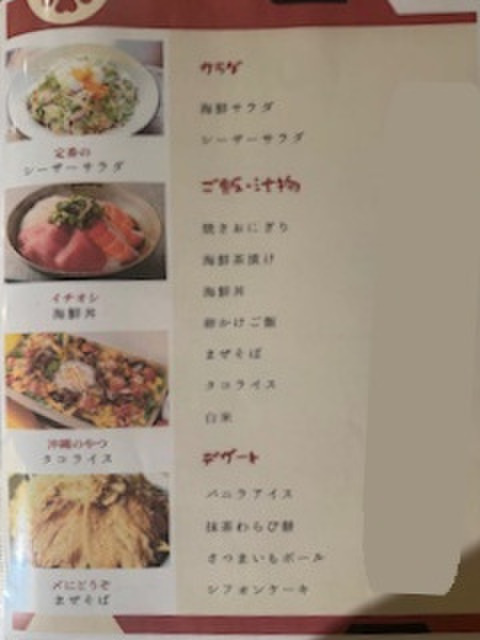 定番の
シーザーサラダ
イチオシ
海鮮丼
沖縄のやつ
タコライス
〆にどうぞ
まぜそば
サラダ
海鮮サラダ
シーザーサラダ
ご飯・汁物
焼きおにぎり
海鮮茶漬け
海鮮丼
卵かけご飯
まぜそば
タコライス
白米
デザート
バニラアイス
抹茶わらび餅
さつまいもボール
シフォンケーキ